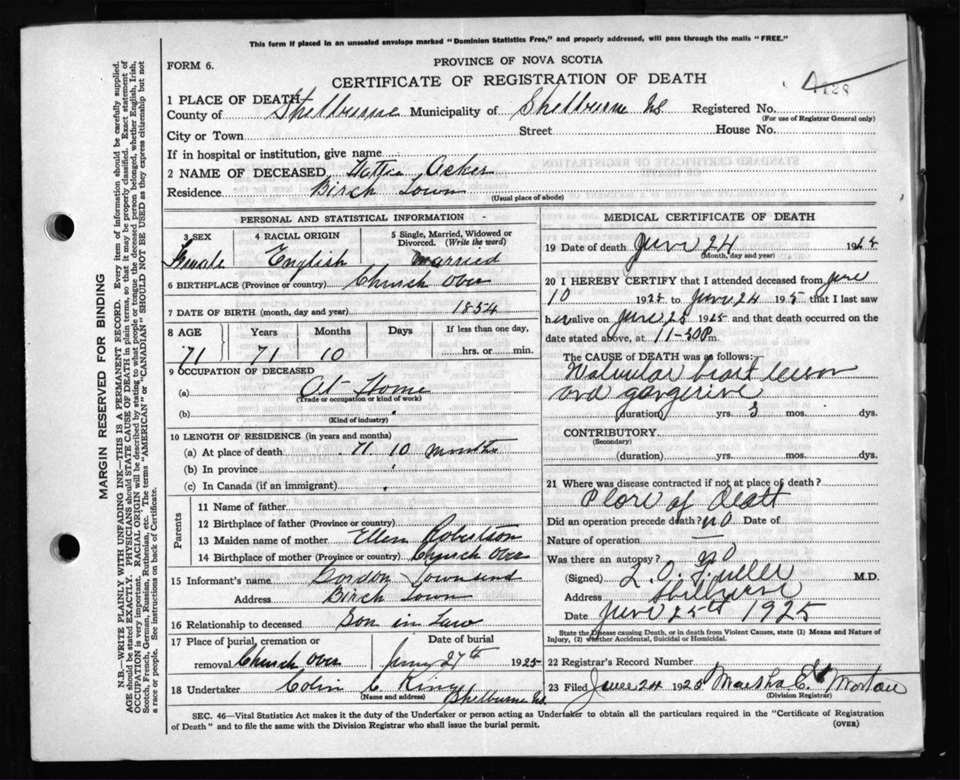 This form if placed in an unsealed envelope marked "Dominion Statistics Free," and properly addressed, will pass through the mails "FREE."
FORM 6.
PROVINCE OF NOVA SCOTIA
CERTIFICATE OF REGISTRATION OF DEATH
1 PLACE OF DEATH
County of Shelburne Municipality of Shelburne NS Registered No.
(For use of Registrar General only)
City or Town Street House No.
If in hospital or institution, give name
2 NAME OF DECEASED Hattie Acker
Residence Birch Town
(Usual place of abode)
PERSONAL AND STATISTICAL INFORMATION
3 SEX 4 RACIAL ORIGIN 5 Single, Married, Widowed or Divorced. (Write the word)
Female English Married
6 BIRTHPLACE (Province or country) Church Over
7 DATE OF BIRTH (month, day and year) 1854
8 AGE Years Months Days If less than one day,
71 71 10 hrs. or min.
9 OCCUPATION OF DECEASED
(a) At Home
(Trade or occupation or kind of work)
(b)
(Kind of industry)
10 LENGTH OF RESIDENCE (in years and months)
(a) At place of death 71 10 months
(b) In province
(c) In Canada (if an immigrant)
Parents
11 Name of father
12 Birthplace of father (Province or country)
13 Maiden name of mother Ellen Robertson
14 Birthplace of mother (Province or country) Church Over
15 Informant's name Gordon Townsend
Address Birch Town
16 Relationship to deceased Son in Law
17 Place of burial, cremation or Date of burial
removal Church Over 27th 1925
18 Undertaker Colin C. King
(Name and address) Shelburne NS.
MEDICAL CERTIFICATE OF DEATH
19 Date of death June 24 192
(Month, day and year)
20 I HEREBY CERTIFY that I attended deceased from June
10 1925 to June 24 1925 that I last saw
her alive on June 23 1925 and that death occurred on
date stated above, at 11-30 P.m.
The CAUSE OF DEATH was as follows:
Valvular heart lesion
and gangrene
(duration) yrs. 3 mos. dys.
CONTRIBUTORY
(Secondary)
(duration) yrs. mos. dys.
21 Where was disease contracted if not at place of death?
Place of Death
Did an operation precede death? no Date of
Nature of operation —
Was there an autopsy? no
(Signed) L. O. Fuller M.D.
Address Shelburne
Date June 25th 1925
State the Disease causing Death, or in death from Violent Causes, state (1) Means and Nature of Injury, (2) whether Accidental, Suicidal or Homicidal.
22 Registrar's Record Number
23 Filed June 24 1925 Martha E. Morton
(Division Registrar)
SEC. 46—Vital Statistics Act makes it the duty of the Undertaker or person acting as Undertaker to obtain all the particulars required in the "Certificate of Registration
of Death" and to file the same with the Division Registrar who shall issue the burial permit.
(OVER)
MARGIN RESERVED FOR BINDING
N.B.—WRITE PLAINLY WITH UNFADING INK—THIS IS A PERMANENT RECORD. Every item of information should be carefully supplied.
AGE should be stated EXACTLY. PHYSICIANS should STATE CAUSE OF DEATH in plain terms, so that it may be properly classified. Exact statement of
OCCUPATION is very important. RACIAL ORIGIN will be described by stating to what people or tongue the deceased person belonged, whether English, Irish,
Scotch, French, German, Russian, Ruthenian, etc. The terms "AMERICAN" or "CANADIAN" SHOULD NOT BE USED as they express citizenship but not
a race or people. See instructions on back of Certificate.